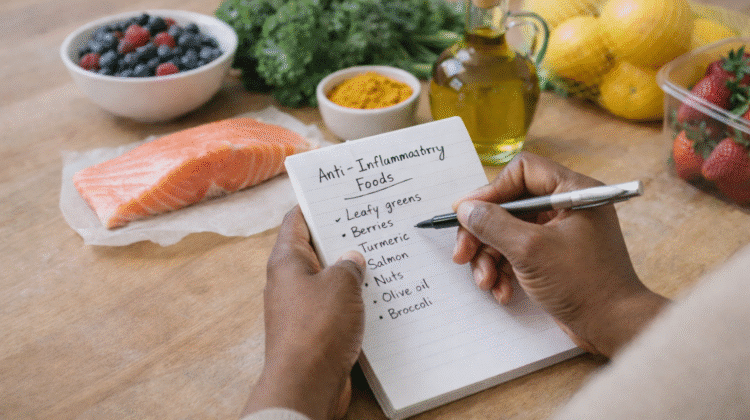 Anti-Inflammastory
Foods
Leafy greens
• Berries
Turmeric
Salmon
• Nuts
• Olive oil
• Broccoli